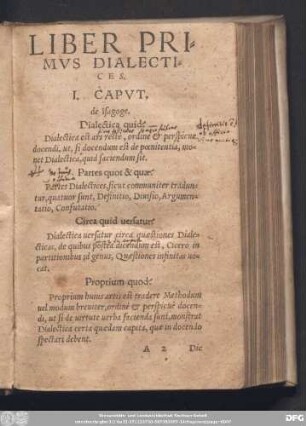 LIBER PRI-
MVS DIALECTI-
CES.
I. CAPVT,
de Isagoge.
Dialectica quid?
Dialectica est ars recte, ordine & perspicue
docendi, ut, si docendum est de pœnitentia, mo-
net Dialectica, quid faciendum sit.
Partes quot & quæ?
Partes Dialectices, sicut communiter tradun-
tur, quatuor sunt, Definitio, Diuisio, Argumen-
tatio, Confutatio.
Circa quid uersatur?
Dialectica uersatur circa quæstiones Diale-
cticas, de quibus postea dicendum est, Cicero in
partitionibus id genus, Quæstiones infinitas uo-
cat.
Proprium quod?
Proprium huius artis est tradere Methodum
uel modum breuiter, ordine & perspicue docen-
di, ut si de uirtute uerba facienda sunt, monstrat
Dialectica certa quædam capita, quæ in docendo
spectari debent.
A 2 Dic